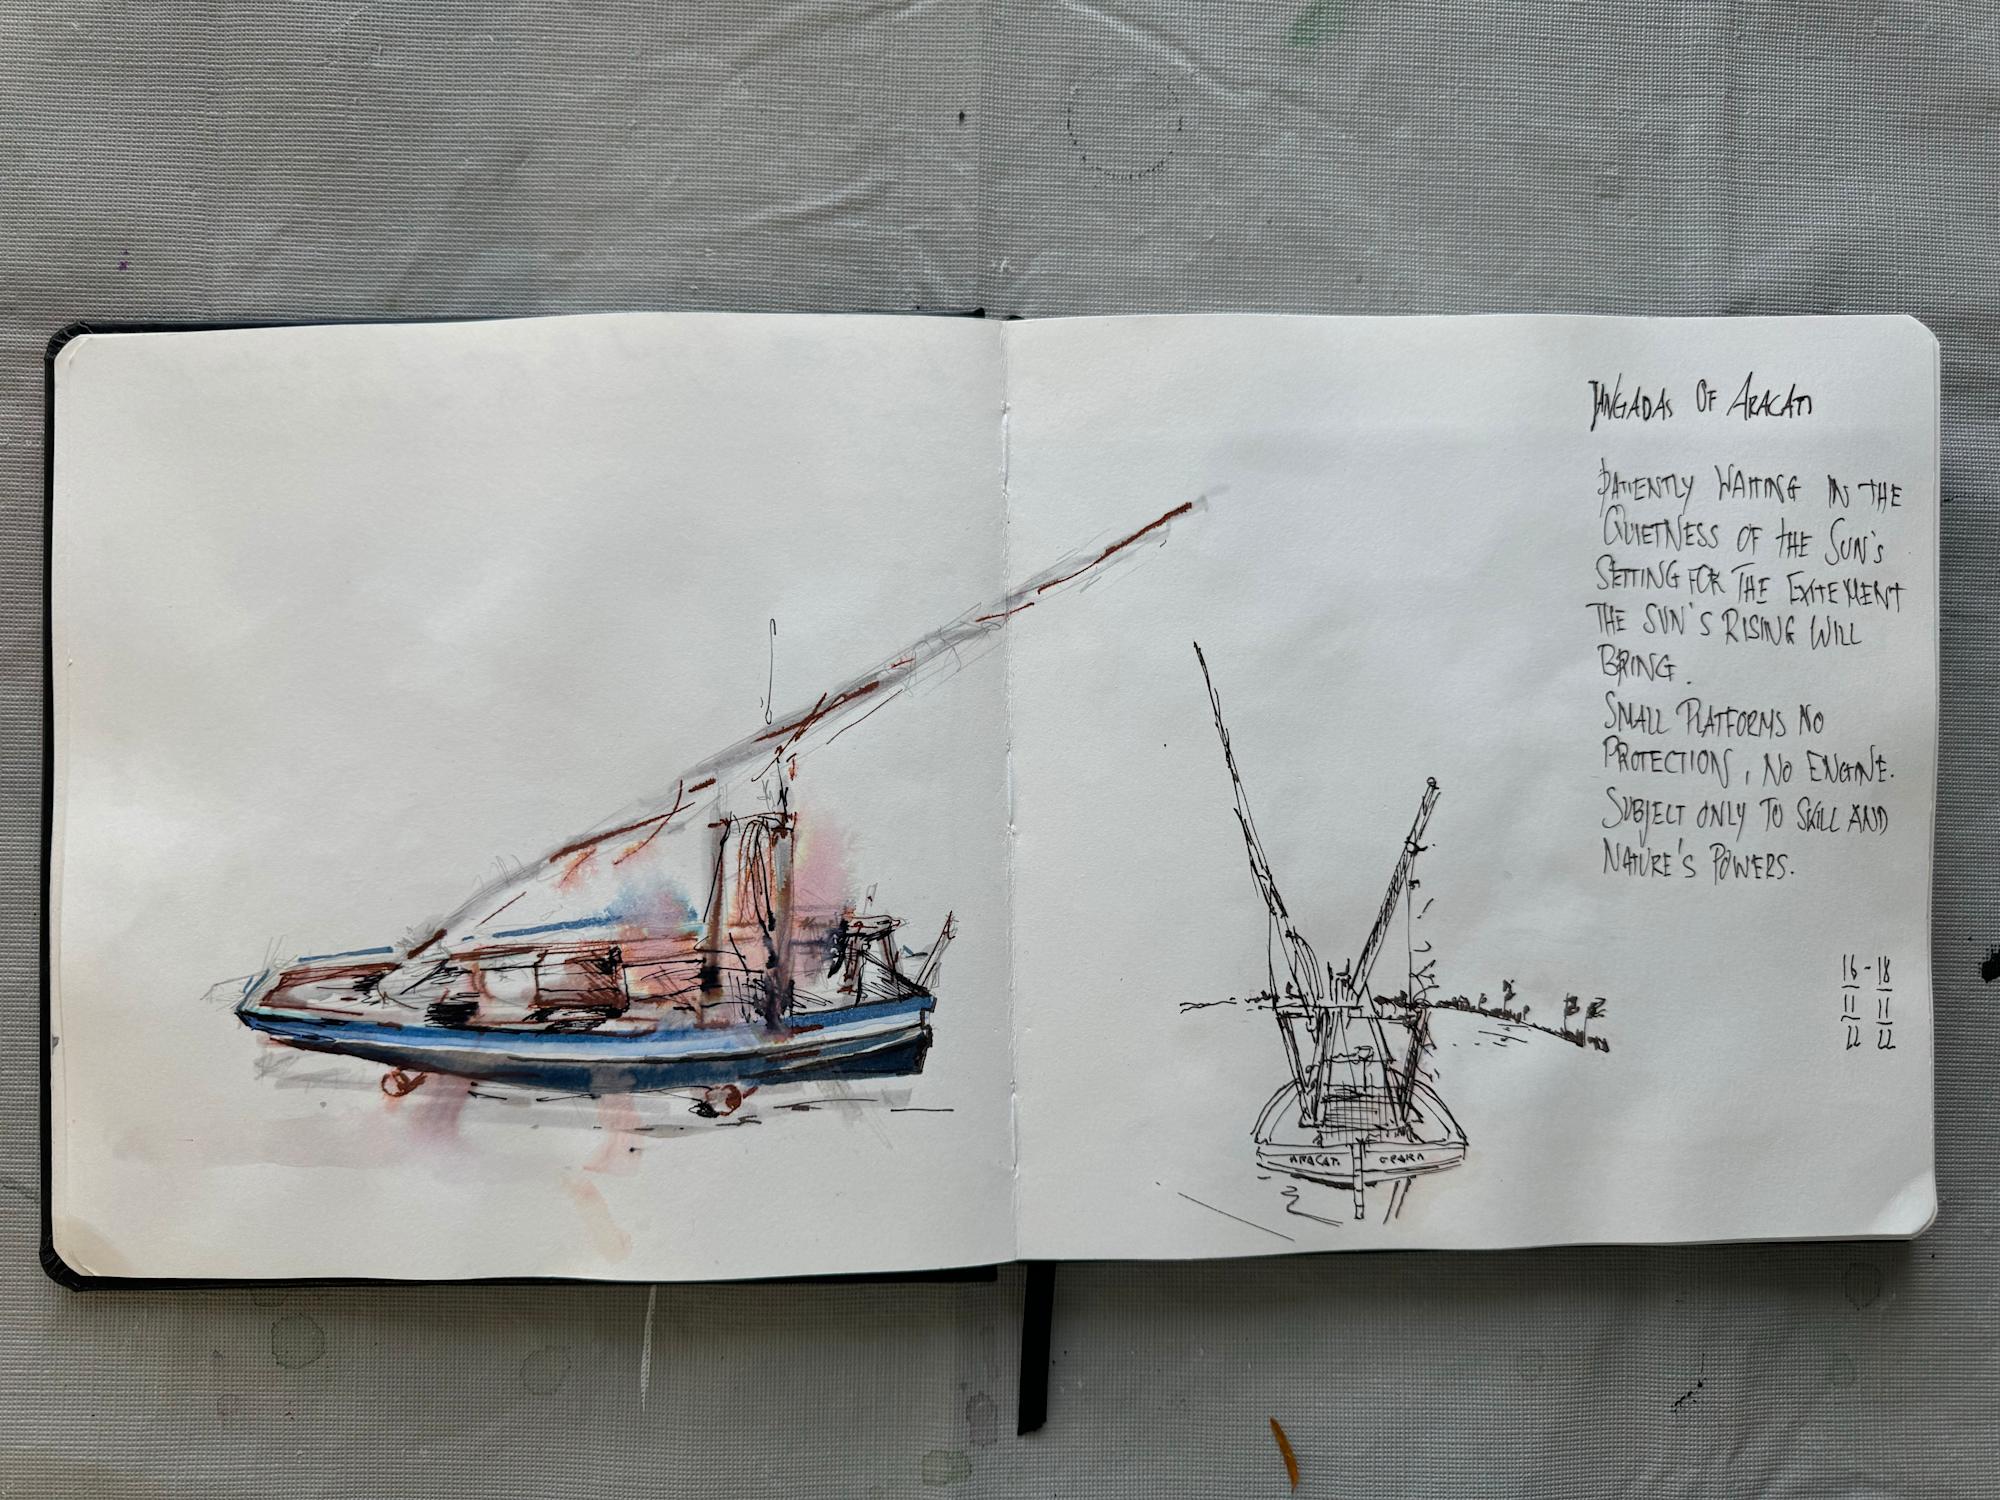 JANGADAS OF ARACATI
PATIENTLY WAITING IN THE
QUIETNESS OF THE SUN'S
SETTING FOR THE EXITEMENT
THE SUN'S RISING WILL
BRING.
SMALL PLATFORMS NO
PROTECTION, NO ENGINE.
SUBJECT ONLY TO SKILL AND
NATURE'S POWERS.
16 - 18
11 11
22 22
ARACATI CEARA